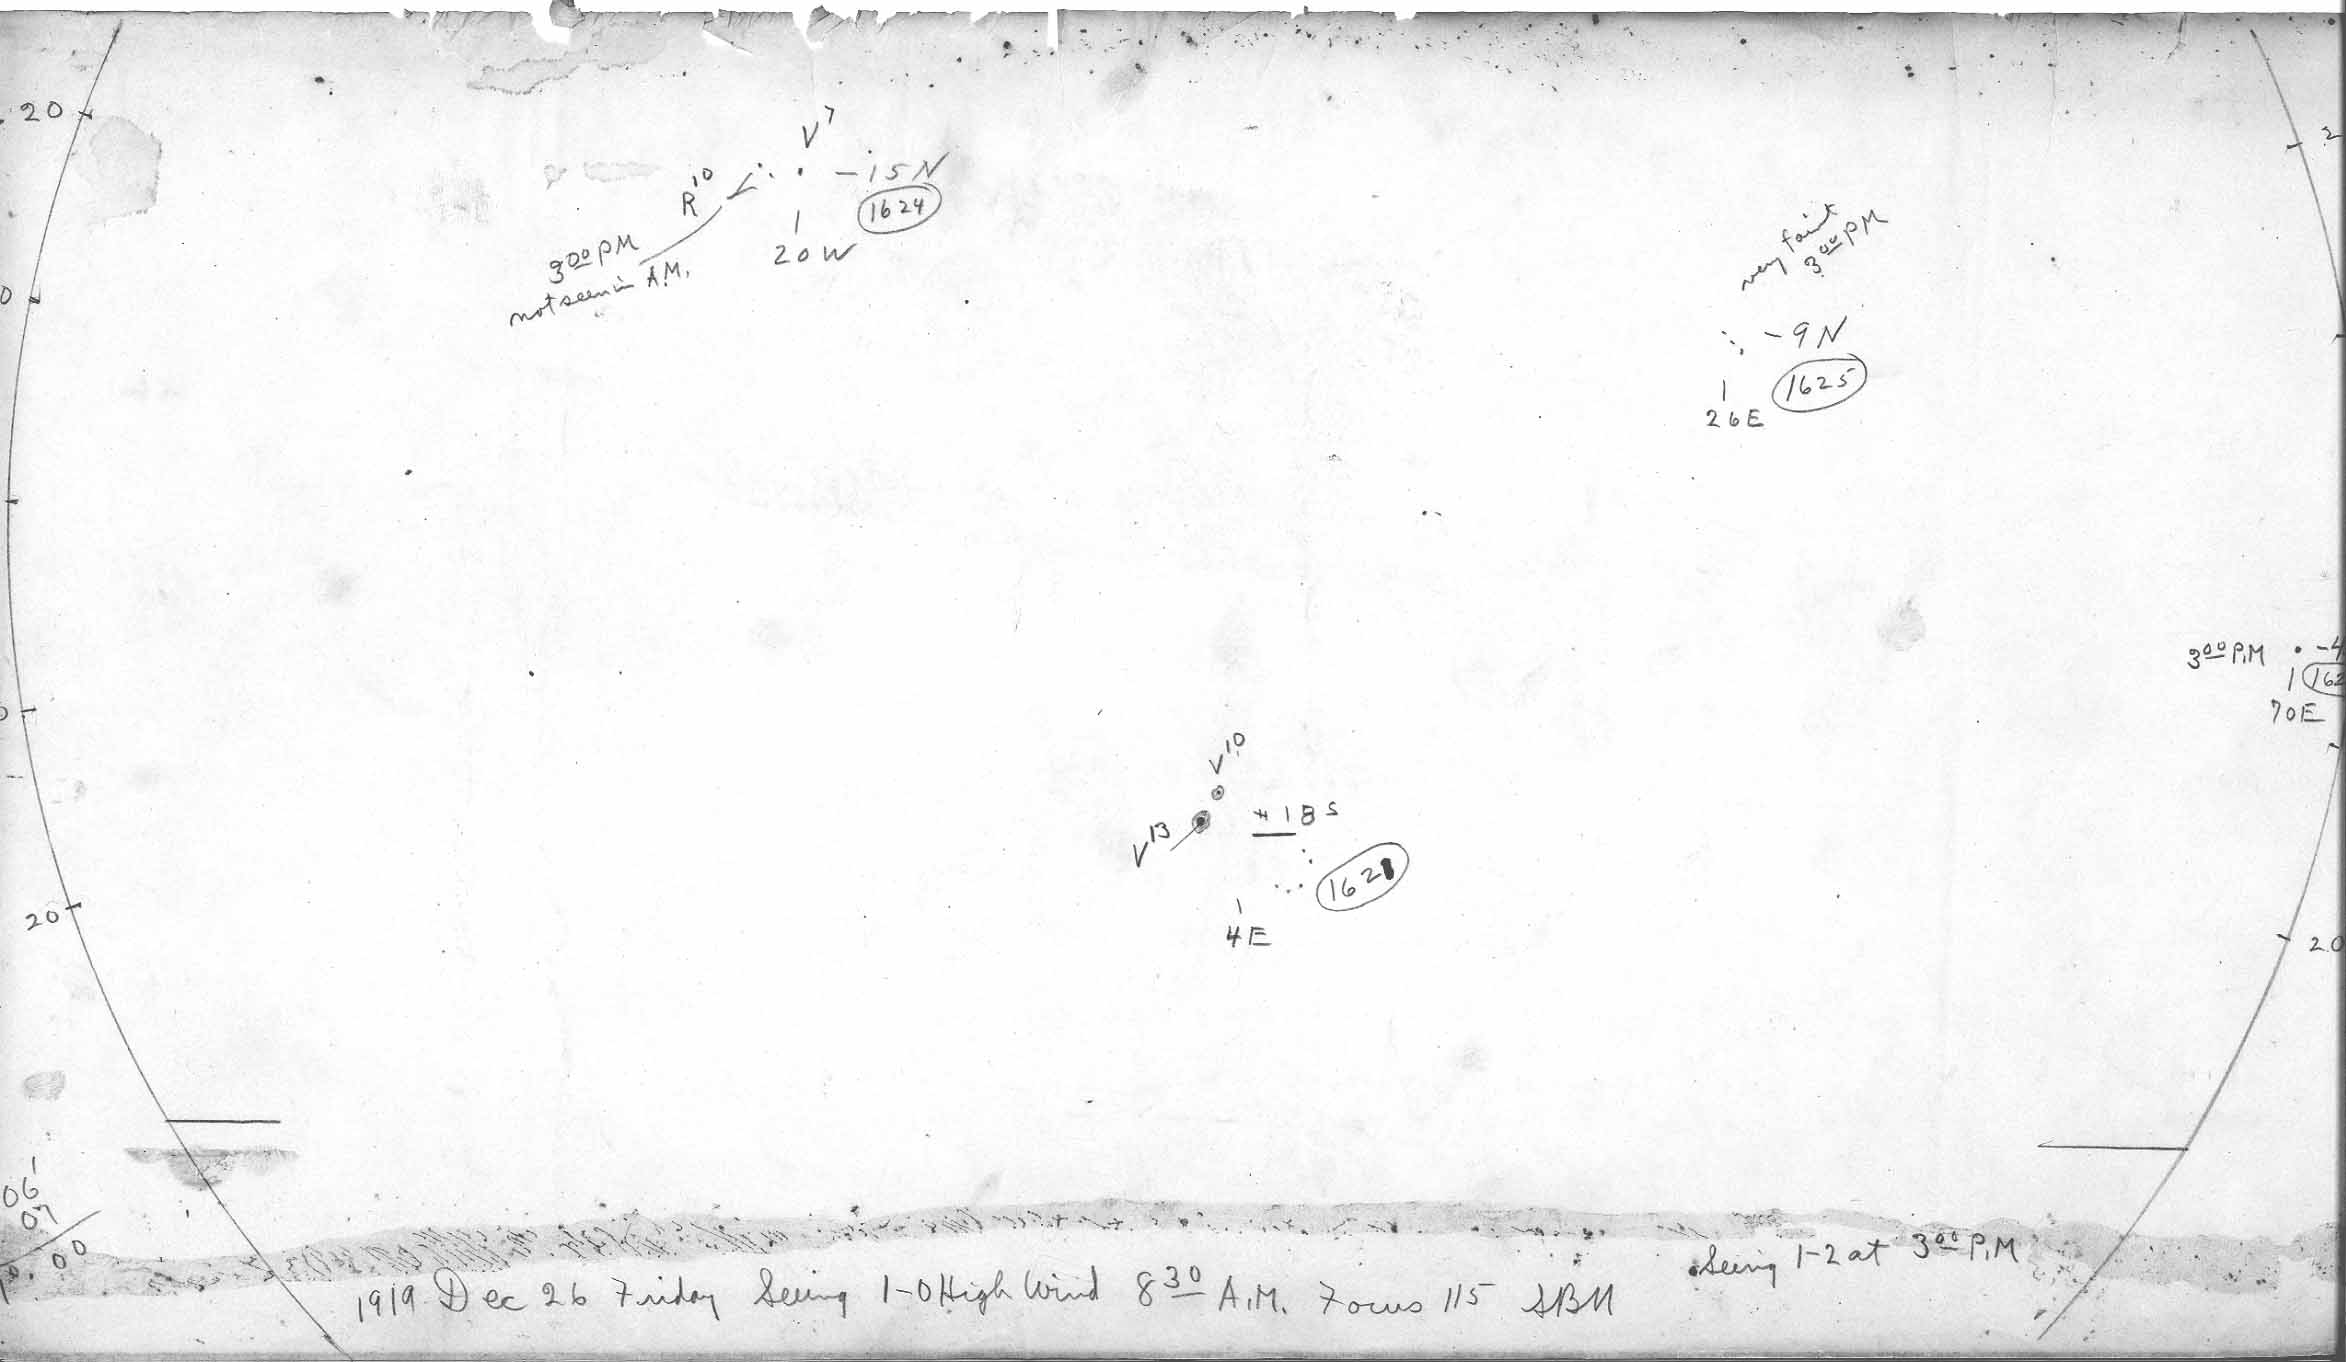 20
V7
R10
-15N
1624
20W
3 00 PM
not seen in A.M.
2
very faint
3 00 PM
-9N
1625
26E
0
3 00 P.M
-4
162
70E
0
V10
V13
18 S
1621
4E
20
20
06
07
00
Seeing 1-2 at 3 00 P.M
1919 Dec 26 Friday Seeing 1-0 High Wind 8 30 A.M. Focus 115